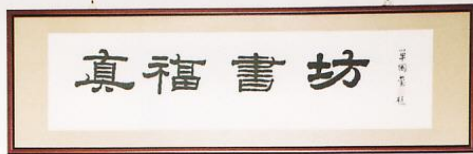 真福書坊